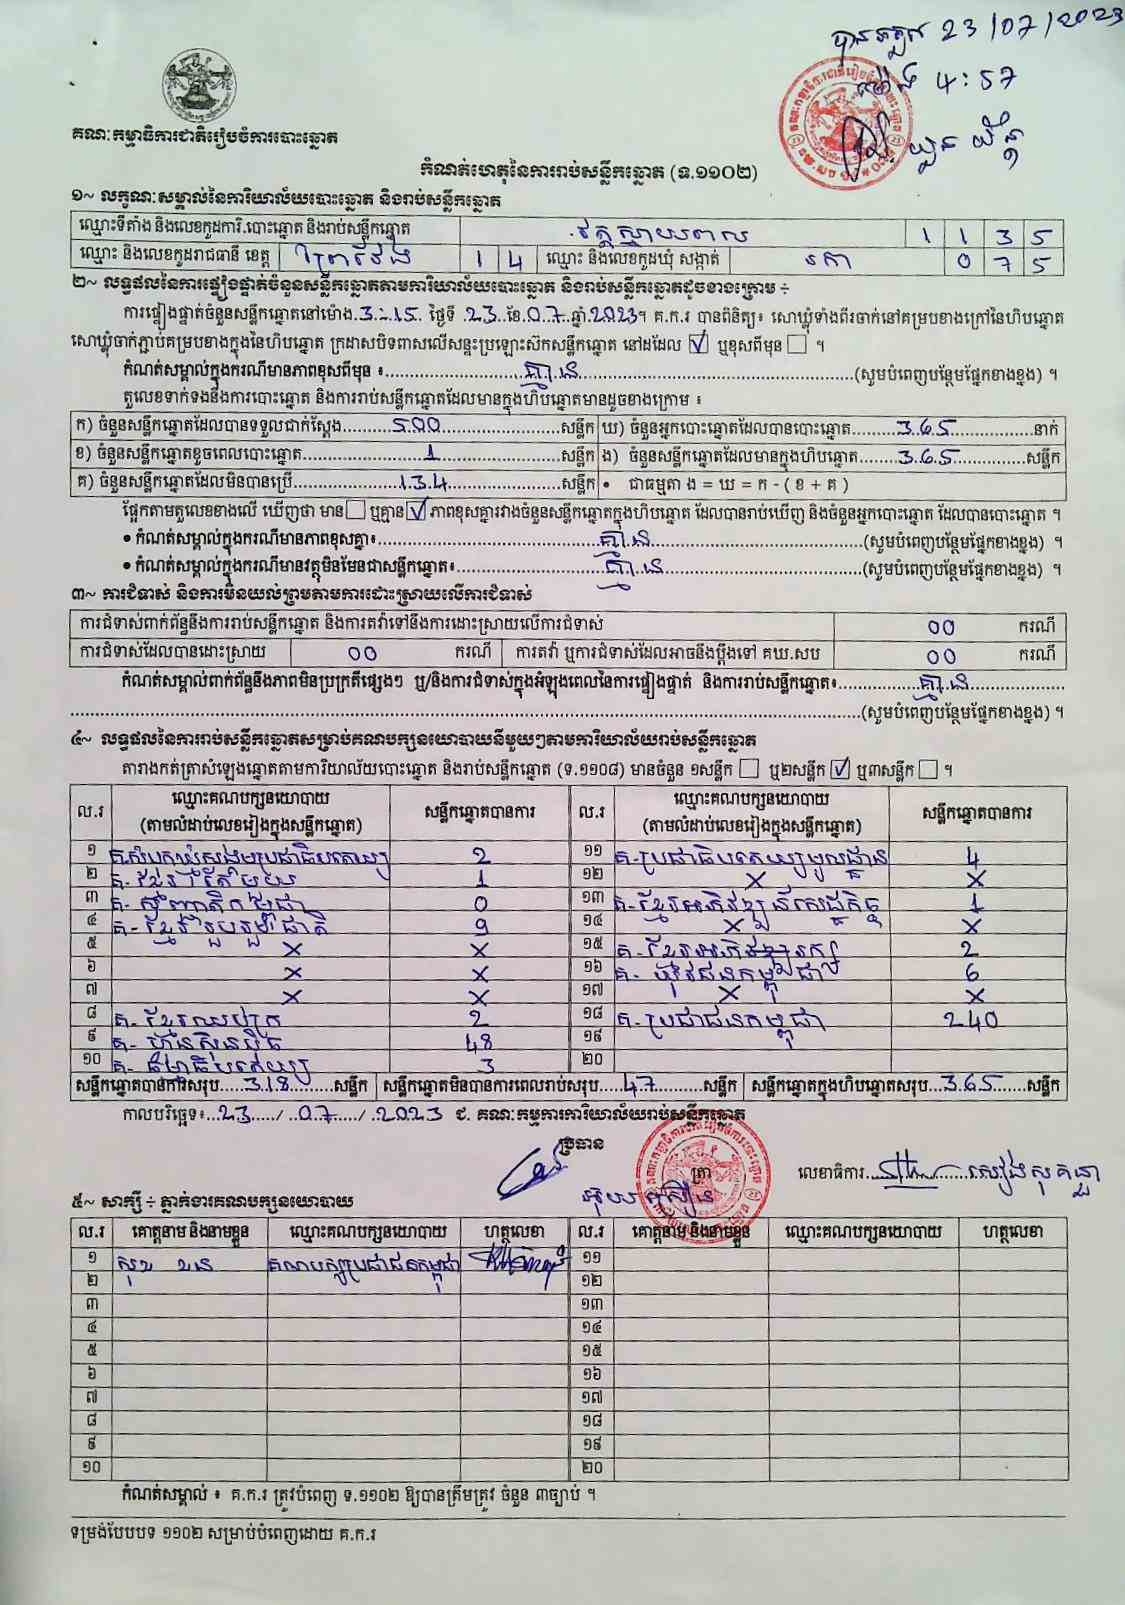 បានទទួល 23/07/2023
ម៉ោង 4:57
គណៈកម្មាធិការជាតិរៀបចំការបោះឆ្នោត
កំណត់ហេតុនៃការរាប់សន្លឹកឆ្នោត (ទ.១១០២)
១~ លក្ខណៈសម្គាល់នៃការិយាល័យបោះឆ្នោត និងរាប់សន្លឹកឆ្នោត
ឈ្មោះទីតាំង និងលេខកូដការិ.បោះឆ្នោត និងរាប់សន្លឹកឆ្នោត វត្តស្វាយពាល 1 1 3 5
ឈ្មោះ និងលេខកូដរាជធានី ខេត្ត ព្រៃវែង 1 4 ឈ្មោះ និងលេខកូដឃុំ សង្កាត់ រកា 0 7 5
២~ លទ្ធផលនៃការផ្ទៀងផ្ទាត់ចំនួនសន្លឹកឆ្នោតតាមការិយាល័យបោះឆ្នោត និងរាប់សន្លឹកឆ្នោតដូចខាងក្រោម ÷
ការផ្ទៀងផ្ទាត់ចំនួនសន្លឹកឆ្នោតនៅម៉ោង.3:15. ថ្ងៃទី .23.ខែ.07.ឆ្នាំ.2023។ គ.ក.រ បានពិនិត្យ៖ សោឃ្លុំទាំងពីរចាក់នៅគម្របខាងក្រៅនៃហិបឆ្នោត
សោឃ្លុំចាក់ភ្ជាប់គម្របខាងក្នុងនៃហិបឆ្នោត ក្រដាសបិទពាសលើសន្ទះប្រឡោះស៊កសន្លឹកឆ្នោត នៅដដែល ☑ ឬខុសពីមុន ☐ ។
កំណត់សម្គាល់ក្នុងករណីមានភាពខុសពីមុន ៖ គ្មាន (សូមបំពេញបន្ថែមផ្នែកខាងខ្នង) ។
តួលេខទាក់ទងនឹងការបោះឆ្នោត និងការរាប់សន្លឹកឆ្នោតដែលមានក្នុងហិបឆ្នោតមានដូចខាងក្រោម ៖
ក) ចំនួនសន្លឹកឆ្នោតដែលបានទទួលជាក់ស្តែង 500 សន្លឹក ឃ) ចំនួនអ្នកបោះឆ្នោតដែលបានបោះឆ្នោត 365 នាក់
ខ) ចំនួនសន្លឹកឆ្នោតខូចពេលបោះឆ្នោត 1 សន្លឹក ង) ចំនួនសន្លឹកឆ្នោតដែលមានក្នុងហិបឆ្នោត 365 សន្លឹក
គ) ចំនួនសន្លឹកឆ្នោតដែលមិនបានប្រើ 134 សន្លឹក • ជាធម្មតា ង = ឃ = ក - ( ខ + គ )
ផ្អែកតាមតួលេខខាងលើ ឃើញថា មាន ☐ ឬគ្មាន ☑ ភាពខុសគ្នារវាងចំនួនសន្លឹកឆ្នោតក្នុងហិបឆ្នោត ដែលបានរាប់ឃើញ និងចំនួនអ្នកបោះឆ្នោត ដែលបានបោះឆ្នោត ។
• កំណត់សម្គាល់ក្នុងករណីមានភាពខុសគ្នា៖ គ្មាន (សូមបំពេញបន្ថែមផ្នែកខាងខ្នង) ។
• កំណត់សម្គាល់ក្នុងករណីមានវត្ថុមិនមែនជាសន្លឹកឆ្នោត៖ គ្មាន (សូមបំពេញបន្ថែមផ្នែកខាងខ្នង) ។
៣~ ការជំទាស់ និងការមិនយល់ព្រមតាមការដោះស្រាយលើការជំទាស់
ការជំទាស់ពាក់ព័ន្ធនឹងការរាប់សន្លឹកឆ្នោត និងការតវ៉ាទៅនឹងការដោះស្រាយលើការជំទាស់ 00 ករណី
ការជំទាស់ដែលបានដោះស្រាយ 00 ករណី ការតវ៉ា ឬការជំទាស់ដែលអាចនឹងប្តឹងទៅ គឃ.សប 00 ករណី
កំណត់សម្គាល់ពាក់ព័ន្ធនឹងភាពមិនប្រក្រតីផ្សេងៗ ឬ/និងការជំទាស់ក្នុងអំឡុងពេលនៃការផ្ទៀងផ្ទាត់ និងការរាប់សន្លឹកឆ្នោត៖ គ្មាន
(សូមបំពេញបន្ថែមផ្នែកខាងខ្នង) ។
៤~ លទ្ធផលនៃការរាប់សន្លឹកឆ្នោតសម្រាប់គណបក្សនយោបាយនីមួយៗតាមការិយាល័យរាប់សន្លឹកឆ្នោត
តារាងកត់ត្រាសំឡេងឆ្នោតតាមការិយាល័យបោះឆ្នោត និងរាប់សន្លឹកឆ្នោត (ទ.១១០៨) មានចំនួន ១សន្លឹក ☐ ឬ២សន្លឹក ☑ ឬ៣សន្លឹក ☐ ។
ល.រ ឈ្មោះគណបក្សនយោបាយ (តាមលំដាប់លេខរៀងក្នុងសន្លឹកឆ្នោត) សន្លឹកឆ្នោតបានការ ល.រ ឈ្មោះគណបក្សនយោបាយ (តាមលំដាប់លេខរៀងក្នុងសន្លឹកឆ្នោត) សន្លឹកឆ្នោតបានការ
១ គ.សំបុកឃ្មុំសង្គមប្រជាធិបតេយ្យ 2 ១១ គ-ប្រជាធិបតេយ្យមូលដ្ឋាន 4
២ គ- ខ្មែរតែមួយ 1 ១២ X X
៣ គ- កម្ពុជា 0 ១៣ គ-ខ្មែរអភិវឌ្ឍន៍សេដ្ឋកិច្ច 1
៤ គ-ខ្មែររួបរួមជាតិ 9 ១៤ X X
៥ X X ១៥ គ-ខ្មែរអភិរក្ស 2
៦ X X ១៦ គ- យុវជនកម្ពុជា 6
៧ X X ១៧ X X
៨ គ- ខ្មែរឈប់ក្រ 2 ១៨ គ-ប្រជាជនកម្ពុជា 240
៩ គ- ហ៊្វុនស៊ិនប៉ិច 48 ១៩
១០ គ- ធម្មាធិបតេយ្យ 3 ២០
សន្លឹកឆ្នោតបានការសរុប 318 សន្លឹក សន្លឹកឆ្នោតមិនបានការពេលរាប់សរុប 47 សន្លឹក សន្លឹកឆ្នោតក្នុងហិបឆ្នោតសរុប 365 សន្លឹក
កាលបរិច្ឆេទ៖ 23 / 07 / 2023 ជ. គណៈកម្មការការិយាល័យរាប់សន្លឹកឆ្នោត
ប្រធាន
ត្រា
លេខាធិការ
៥~ សាក្សី ÷ ភ្នាក់ងារគណបក្សនយោបាយ
ល.រ គោត្តនាម និងនាមខ្លួន ឈ្មោះគណបក្សនយោបាយ ហត្ថលេខា ល.រ គោត្តនាម និងនាមខ្លួន ឈ្មោះគណបក្សនយោបាយ ហត្ថលេខា
១ សុខ ខន គណបក្សប្រជាជនកម្ពុជា ១១
២ ១២
៣ ១៣
៤ ១៤
៥ ១៥
៦ ១៦
៧ ១៧
៨ ១៨
៩ ១៩
១០ ២០
កំណត់សម្គាល់ ៖ គ.ក.រ ត្រូវបំពេញ ទ.១១០២ ឱ្យបានត្រឹមត្រូវ ចំនួន ៣ច្បាប់ ។
ទម្រង់បែបបទ ១១០២ សម្រាប់បំពេញដោយ គ.ក.រ